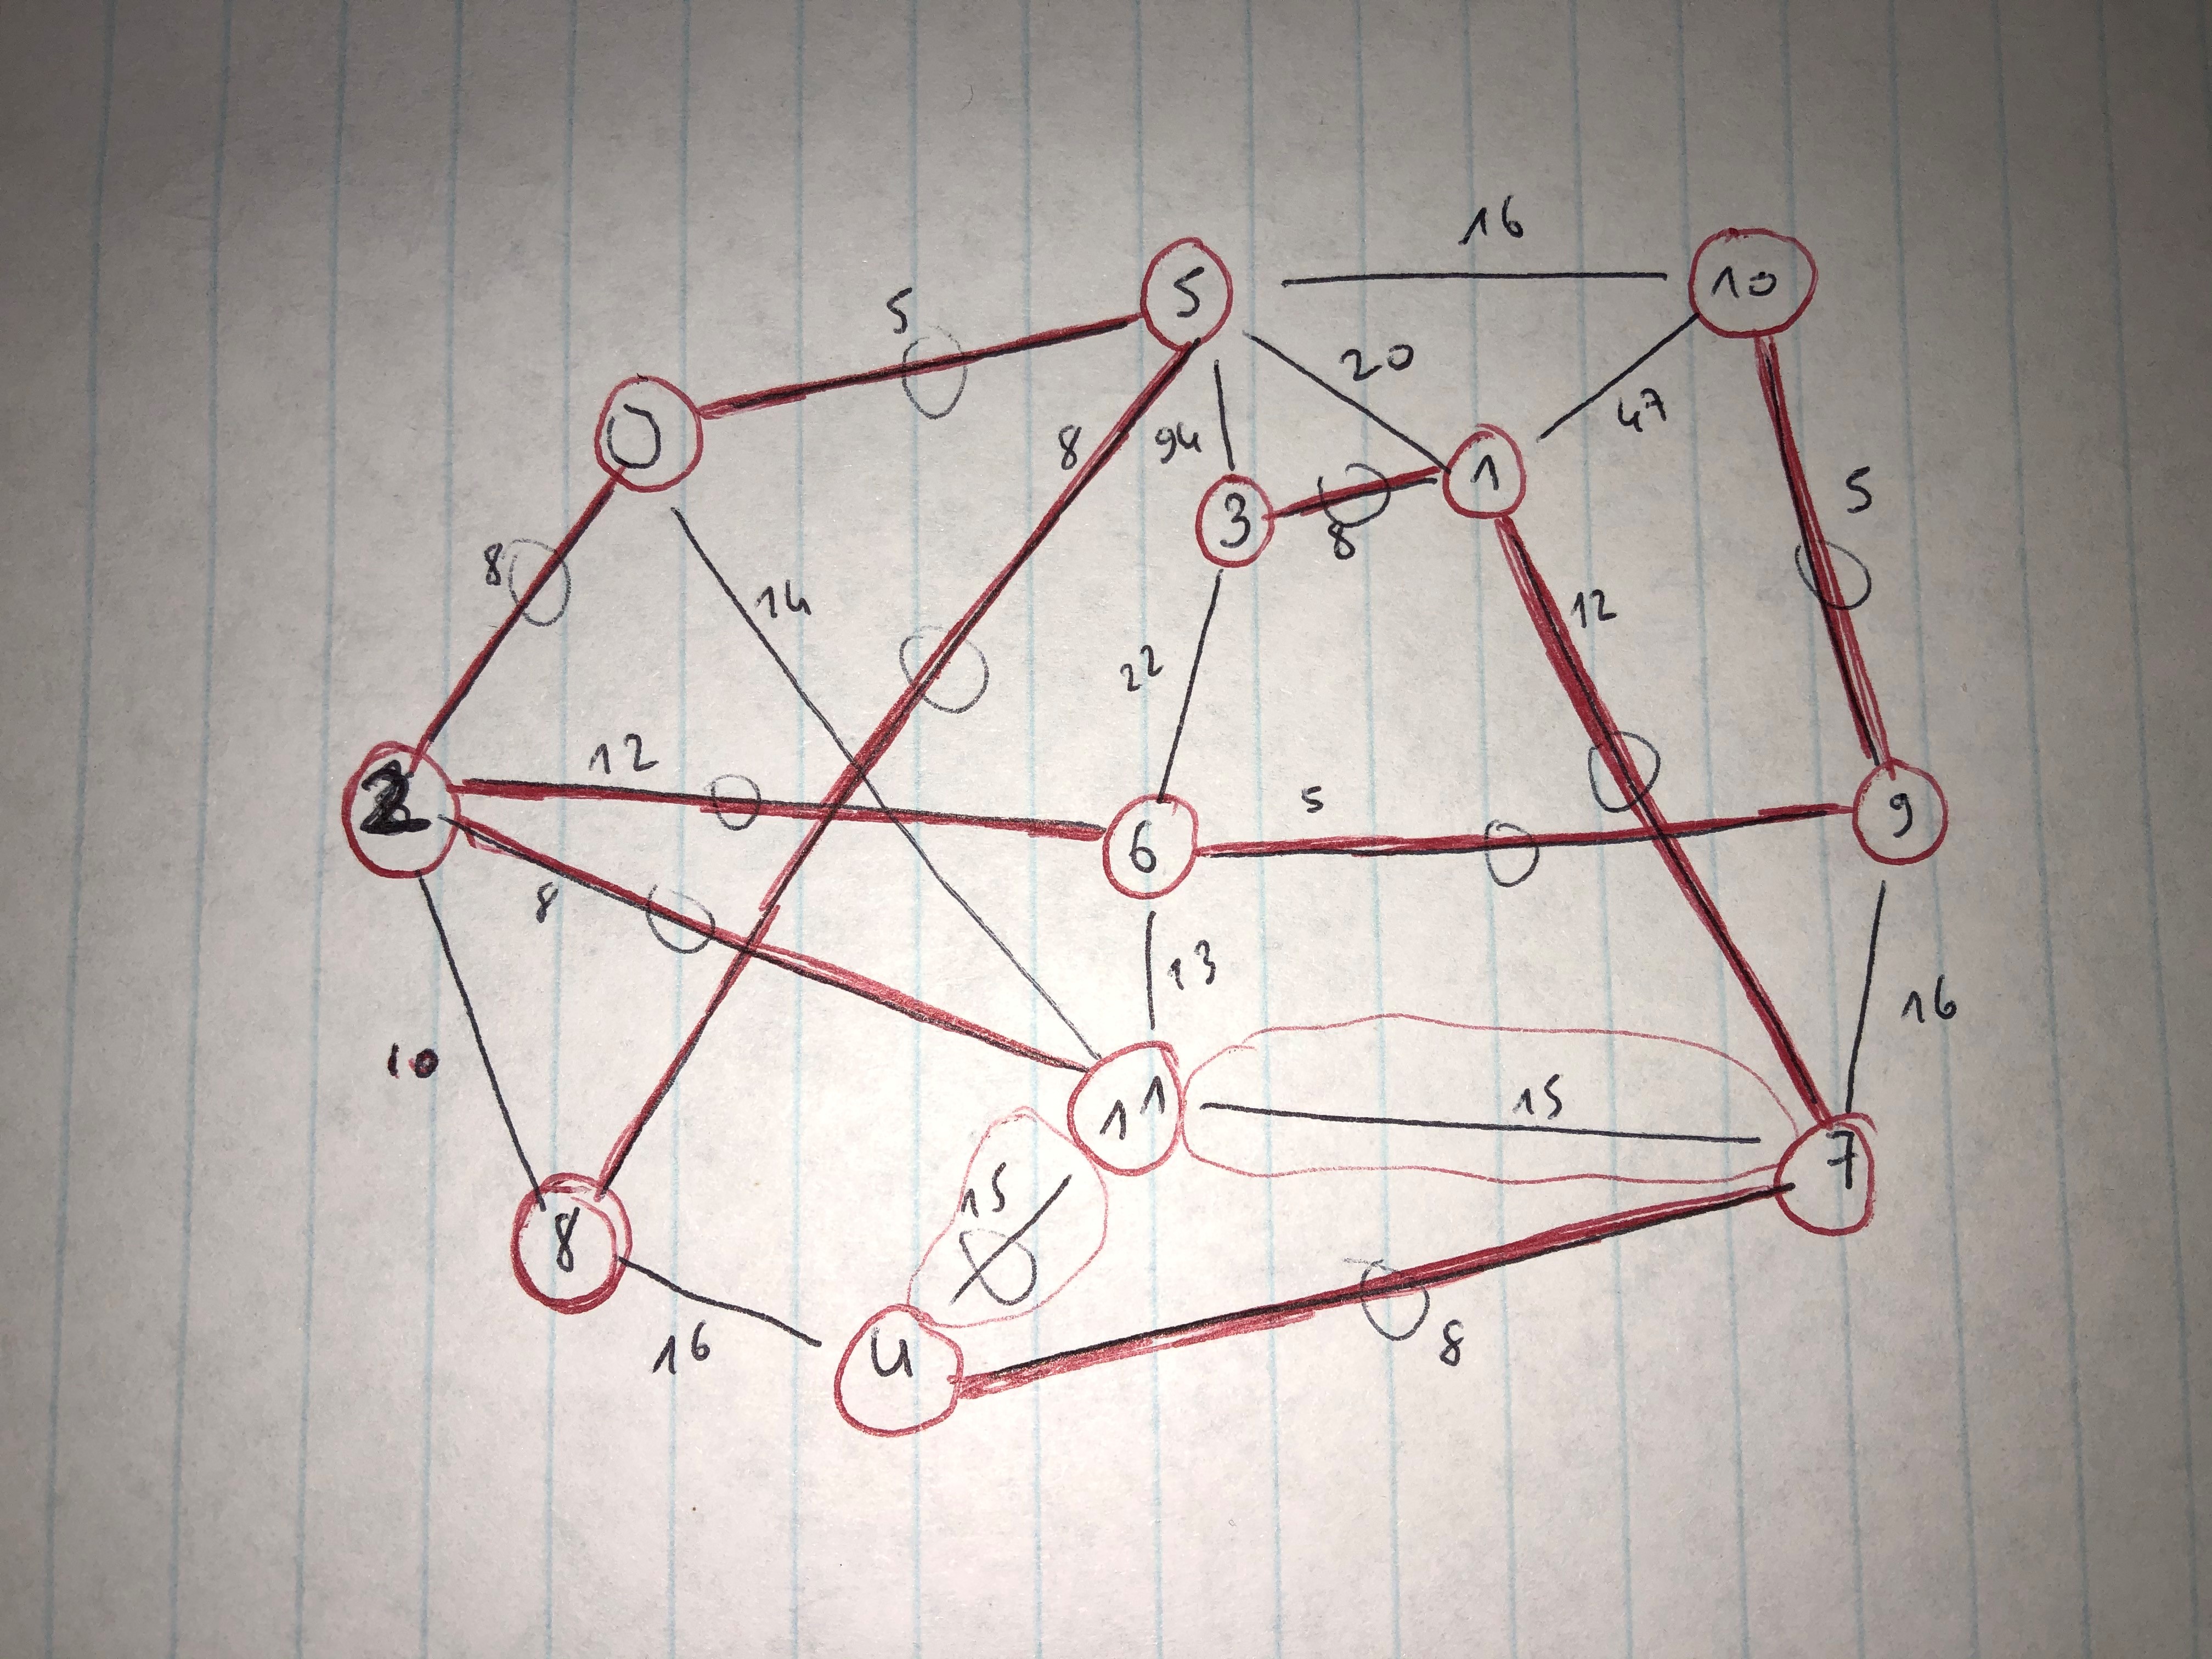 16
5 10
5
20
0 8 94 47
1
5
3
8
8
14 12
22
12
2 5
9
6
8
13
16
10
15
11
7
15
8
16 4 8